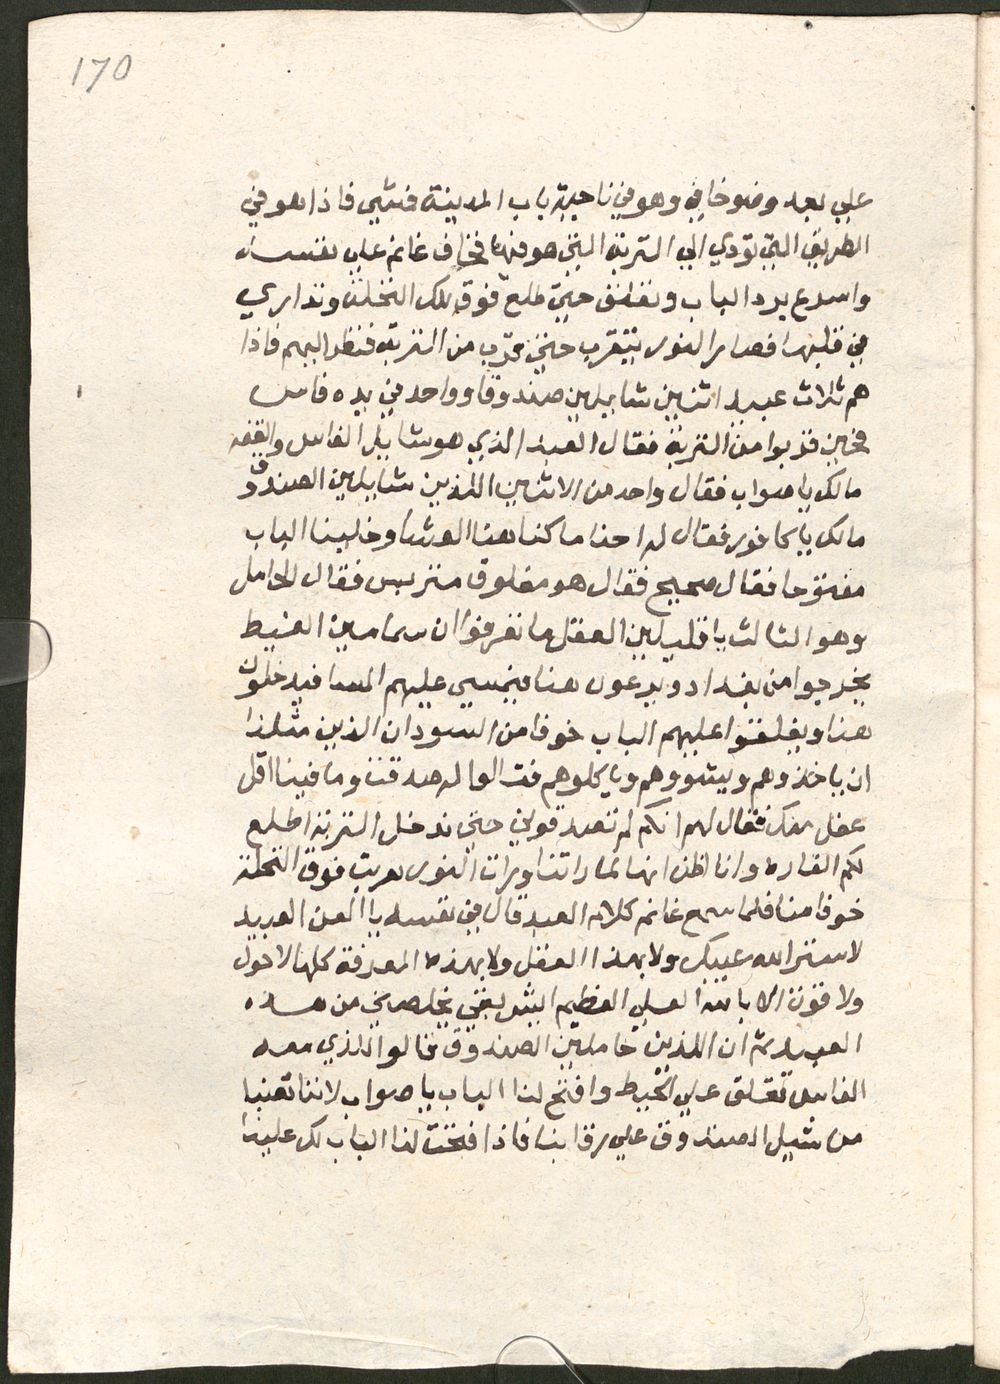 170
علي بعد وضو خافي وهو في ناحية باب المدينة فمشي فاذا هو في
الطريق التي تودي الي التربة التي هو فيها فخاف غانم علي نفسه
واسرع برد الباب وتعلق حتي طلع فوق تلك النخلة وتداري
في قلبها فصار النور يتقرب حتي قرب من التربة فنظر اليهم فاذا
هم ثلاث عبيد اثنين شايلين صندوقا وواحد في يده فاس
فحين قربوا من التربة فقال العبد الذي هو شايل الفاس والقفه
مالك يا صواب فقال واحد من الاثنين اللذين شايلين الصندوق
مالك يا كافور فقال له احنا ما كنا هنا العشا وخلينا الباب
مفتوحا فقال صحيح فقال هو مغلوق متربس فقال الحامل
وهو الثالث يا قليلين العقل ما تعرفوا ان صامين الغيط
يخرجوا من بغداد ويرعون هنا فيمسي عليهم المسا فيدخلون
هنا ويغلقوا عليهم الباب خوفا من السودان الذين مثلنا
ان ياخذوهم ويشووهم وياكلوهم فقالوا له صدقت وما فينا اقل
عقل منك فقال لهم انكم لم تصدقوني حتي ندخل التربة اطلع
لكم الفاره وانا اظن انها لما راتنا ورات النور هربت فوق النخلة
خوفا منا فلما سمع غانم كلام العبد قال في نفسه يا العن العبيد
لا ستر الله عيبك ولا بهذا العقل ولا بهذه المعرفة كلها لا حول
ولا قوة الا بالله العلي العظيم ايش بقي يخلصني من هذه
العبيد ثم ان اللذين حاملين الصندوق قالوا للذي معه
الفاس تعلق علي الحيط وافتح لنا الباب يا صواب لاننا تعبنا
من شيل الصندوق علي رقابنا فاذا فتحت لنا الباب لك علينا